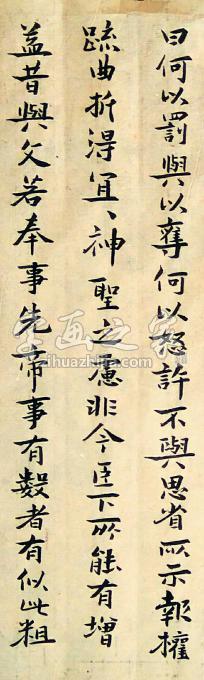 曰何以罰與以奪何以怒許不與思省所示報權
疏曲折得宜、神聖之慮非今臣下所能有增
益昔與文若奉事先帝事有數者有似此粗
字画之家
zihuazhijia.com